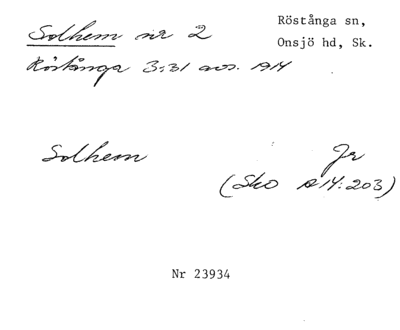 Solhem nr 2
Röstånga sn,
Onsjö hd, Sk.
Röstånga 3:31 avs. 1914
Solhem Jr
(Sko A 14:203)
Nr 23934